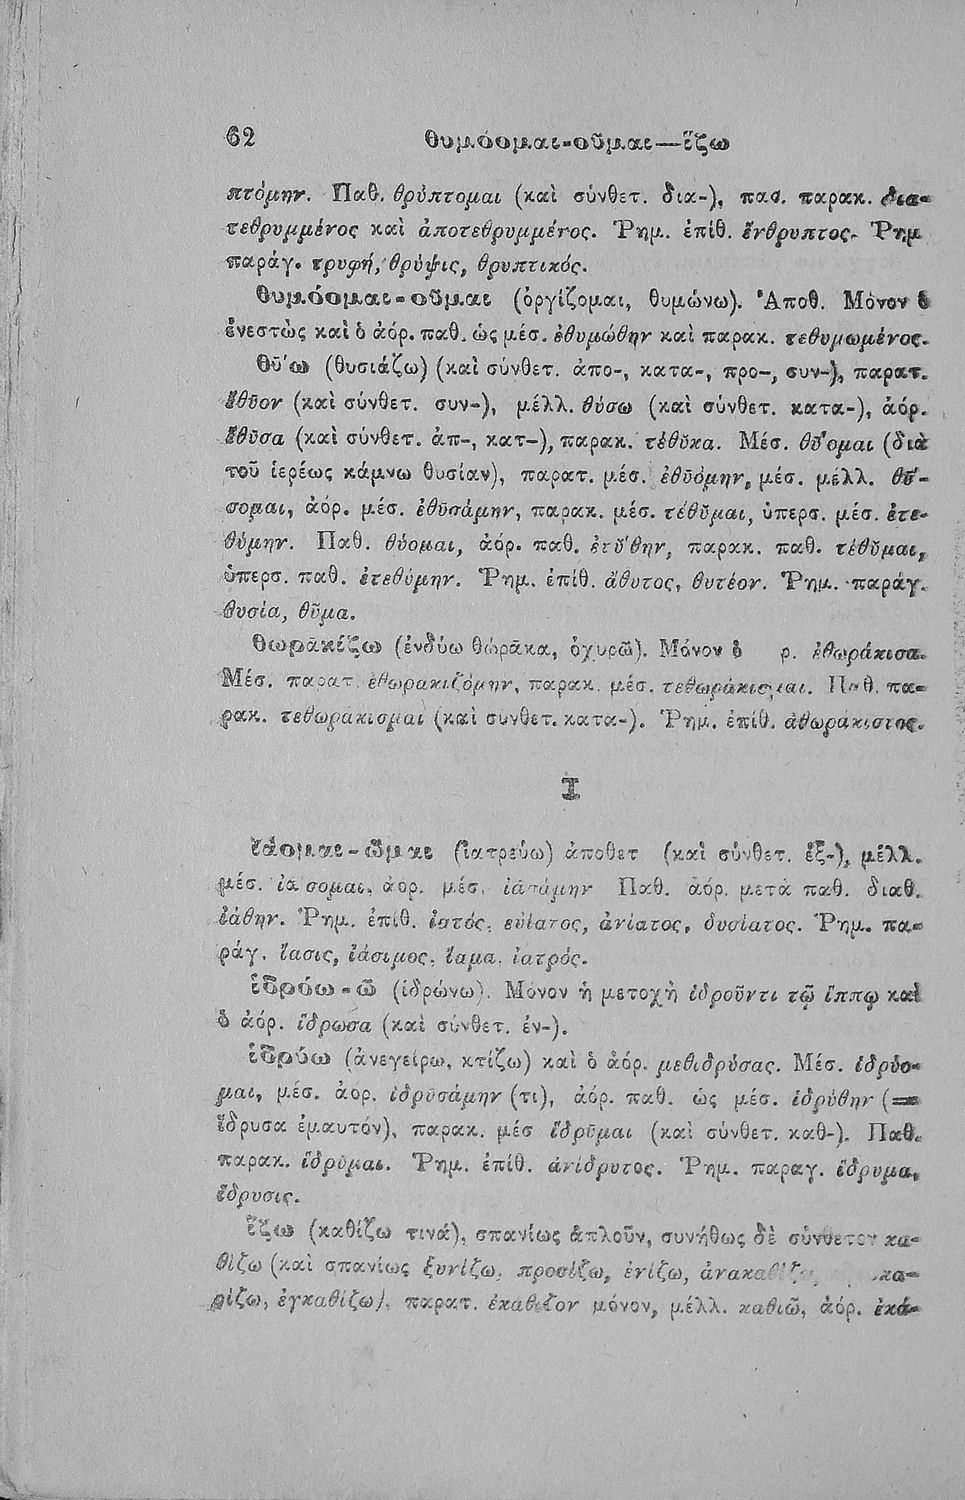 62 θυμόομαι-οῦμαι—ἵζω
πτόμην. Παθ. θρύπτομαι (καὶ σύνθετ. δια-), παθ. παρακ. δια-
τεθρυμμένος καὶ ἀποτεθρυμμένος. Ῥημ. ἐπίθ. ἔνθρυπτος. Ῥημ
παράγ. τρυφή, θρύψις, θρυπτικός.
θυμόομαι-οῦμαι (ὀργίζομαι, θυμώνω). Ἀποθ. Μόνον ὁ
ἐνεστὼς καὶ ὁ ἀόρ. παθ. ὡς μέσ. ἐθυμώθην καὶ παρακ. τεθυμωμένος.
θύ̄ω (θυσιάζω) (καὶ σύνθετ. ἀπο-, κατα-, προ-, συν-), παρατ.
ἔθῡον (καὶ σύνθετ. συν-), μέλλ. θύσω (καὶ σύνθετ. κατα-), ἀόρ.
ἔθῡσα (καὶ σύνθετ. ἀπ-, κατ-), παρακ. τέθῠκα. Μέσ. θύ̄ομαι (διὰ
τοῦ ἱερέως κάμνω θυσίαν), παρατ. μέσ. ἐθῡόμην, μέσ. μέλλ. θύ̄-
σομαι, ἀόρ. μέσ. ἐθῡσάμην, παρακ. μέσ. τέθῠμαι, ὑπερσ. μέσ. ἐτε-
θύμην. Παθ. θύομαι, ἀόρ. παθ. ἐτύ̆θην, παρακ. παθ. τέθῠμαι,
ὑπερσ. παθ. ἐτεθύμην. Ῥημ. ἐπίθ. ἄθυτος, θυτέον. Ῥημ. παράγ.
θυσία, θῦμα.
θωρᾱκίζω (ἐνδύω θώρᾱκα, ὀχυρῶ). Μόνον ὁ ρ. ἐθωράκισα.
Μέσ. παρατ. ἐθωρακιζόμην, παρακ. μέσ. τεθωράκισμαι. Παθ. πα-
ρακ. τεθωράκισμαι (καὶ σύνθετ. κατα-). Ῥημ. ἐπίθ. ἀθωράκιστος.
Ι
ἰάομαι-ῶμαι (ἰατρεύω) ἀποθετ (καὶ σύνθετ. ἐξ-), μέλλ.
μέσ. ἰάσομαι, ἀόρ. μέσ. ἰασάμην Παθ. ἀόρ. μετὰ παθ. διαθ.
ἰάθην. Ῥημ. ἐπίθ. ἰατός, εὐίατος, ἀνίατος, δυσίατος. Ῥημ. πα-
ράγ. ἴασις, ἰάσιμος, ἴαμα, ἰατρός.
ἱδρόω-ῶ (ἱδρώνω). Μόνον ἡ μετοχὴ ἱδροῦντι τῷ ἵππῳ καὶ
ὁ ἀόρ. ἵδρωσα (καὶ σύνθετ. ἐν-).
ἱδρύω (ἀνεγείρω, κτίζω) καὶ ὁ ἀόρ. μεθιδρύσας. Μέσ. ἱδρύο-
μαι, μέσ. ἀορ. ἱδρῡσάμην (τι), ἀόρ. παθ. ὡς μέσ. ἱδρύθην (=
ἵδρυσα ἐμαυτόν), παρακ. μέσ ἵδρῡμαι (καὶ σύνθετ. καθ-). Παθ.
παρακ. ἵδρῡμαι. Ῥημ. ἐπίθ. ἀνίδρυτος. Ῥημ. παραγ. ἵδρυμα,
ἵδρυσις.
ἵζω (καθίζω τινά), σπανίως ἁπλοῦν, συνήθως δὲ σύνθετον κα-
θίζω (καὶ σπανίως ξυνίζω, προσίζω, ἐνίζω,
ἐγκαθίζω), παρατ. ἐκάθιζον μόνον, μέλλ. καθιῶ, ἀόρ. ἐκά-